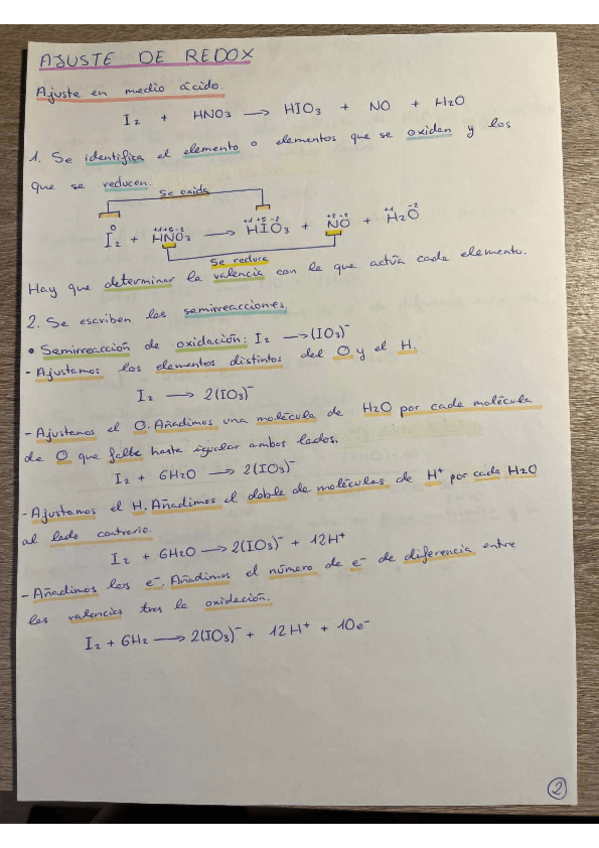 AJUSTE DE REDOX
Ajuste en medio ácido.
I₂ + HNO₃ → HIO₃ + NO + H₂O
1. Se identifica el elemento o elementos que se oxidan y los
que se reducen.
Se oxida
0 +1 +5 -2 +1 +5 -2 +2 -2 +1 -2
I₂ + HNO₃ → HIO₃ + NO + H₂O
Se reduce
Hay que determinar la valencia con la que actúa cada elemento.
2. Se escriben las semirreacciones.
• Semirreacción de oxidación: I₂ → (IO₃)⁻
- Ajustamos los elementos distintos del O y el H.
I₂ → 2(IO₃)⁻
- Ajustamos el O. Añadimos una molécula de H₂O por cada molécula
de O que falte hasta igualar ambos lados.
I₂ + 6H₂O → 2(IO₃)⁻
- Ajustamos el H. Añadimos el doble de moléculas de H⁺ por cada H₂O
al lado contrario.
I₂ + 6H₂O → 2(IO₃)⁻ + 12H⁺
- Añadimos los e⁻. Añadimos el número de e⁻ de diferencia entre
las valencias tras la oxidación.
I₂ + 6H₂ → 2(IO₃)⁻ + 12H⁺ + 10e⁻
2